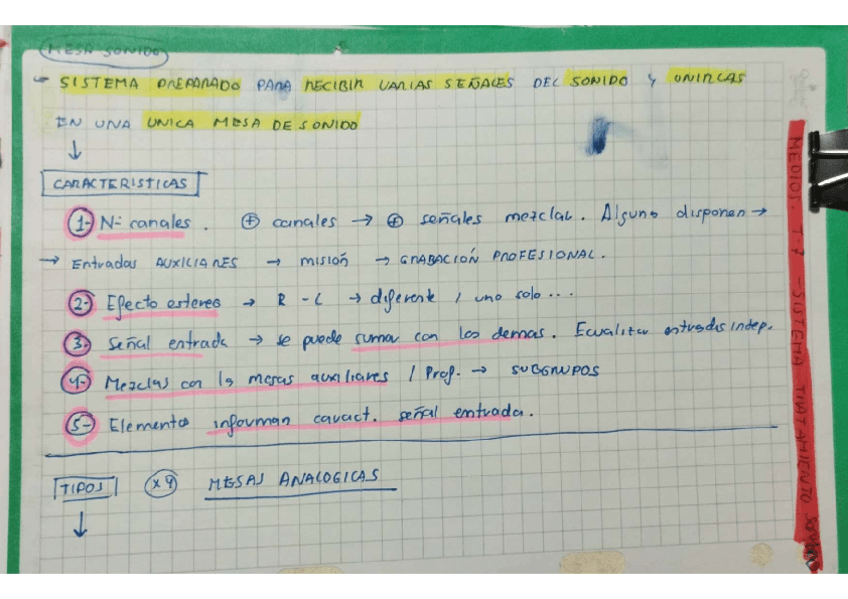 MESA SONIDO
SISTEMA PREPARADO PARA RECIBIR VARIAS SEÑALES DEL SONIDO Y UNIRLAS
EN UNA UNICA MESA DE SONIDO
↓
CARACTERISTICAS
1- Nº canales. ⊕ canales → ⊕ señales mezclar. Alguno disponen →
→ Entradas AUXILIARES → misión → GRABACIÓN PROFESIONAL.
2- Efecto estereo → R - L → diferente / uno solo...
3- Señal entrada → se puede sumar con los demas. Ecualizar entradas indep.
4- Mezclas con la mesas auxiliares / Prof. → SUBGRUPOS
5- Elementos informan caract. señal entrada.
TIPOS x 4 MESAS ANALOGICAS
↓
MEDIOS. T-7 - SISTEMA TRATAMIENTO SONIDO